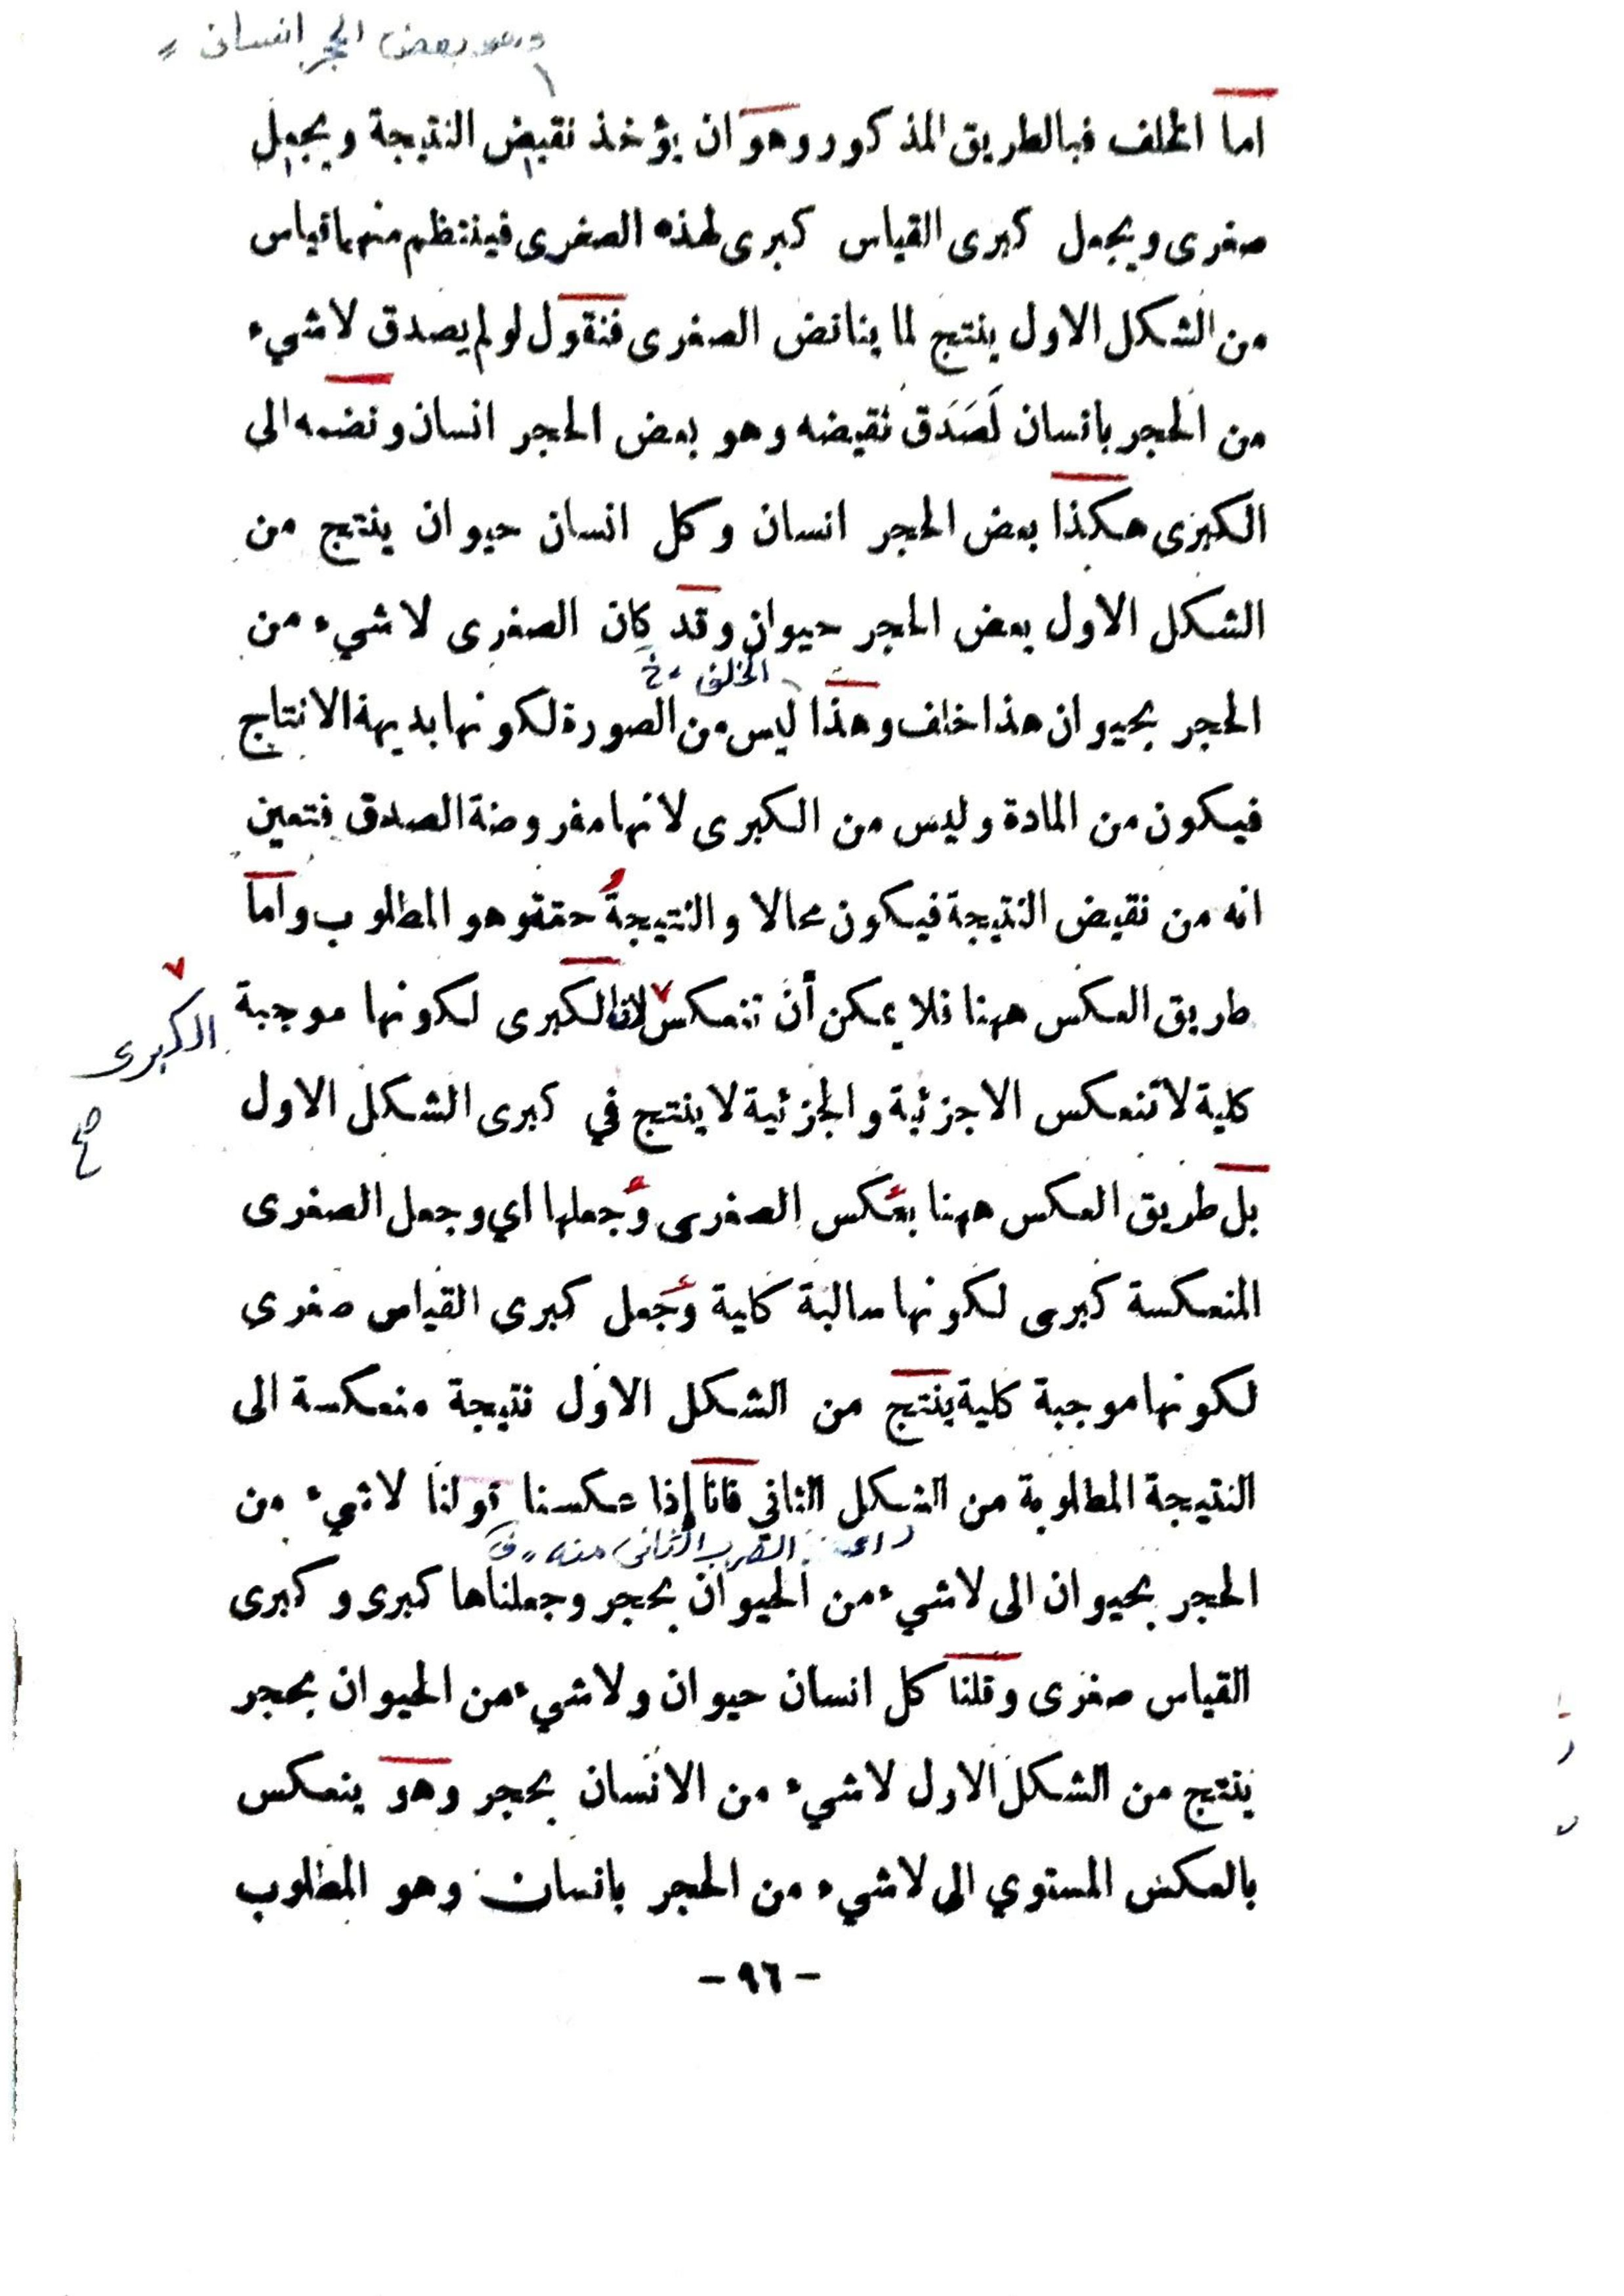 وهو بعض الحجر انسان
اما الخلف فبالطريق المذكور وهو ان يؤخذ نقيض النتيجة ويجعل
صغرى ويجعل كبرى القياس كبرى لهذه الصغرى فينتظم منهما قياس
من الشكل الاول ينتج لما يناقض الصغرى فنقول لو لم يصدق لا شيء
من الحجر بانسان لَصَدَق نقيضه وهو بعض الحجر انسان ونضمه الى
الكبرى هكذا بعض الحجر انسان وكل انسان حيوان ينتج من
الشكل الاول بعض الحجر حيوان وقد كان الصغرى لا شيء من
الخلف
الحجر بحيوان هذا خلف وهذا ليس من الصورة لكونها بديهة الانتاج
فيكون من المادة وليس من الكبرى لانها مفروضة الصدق فتعين
انه من نقيض النتيجة فيكون محالا والنتيجةُ حقة وهو المطلوب واما
طريق العكس ههنا فلا يمكن أن تنعكس لان الكبرى لكونها موجبة
الكبرى
صح
كلية لا تنعكس الا جزئية والجزئية لا ينتج في كبرى الشكل الاول
بل طريق العكس ههنا بعكس الصغرى وجعلها اي وجعل الصغرى
المنعكسة كبرى لكونها سالبة كلية وجعل كبرى القياس صغرى
لكونها موجبة كلية ينتج من الشكل الاول نتيجة منعكسة الى
النتيجة المطلوبة من الشكل الثاني فانا إذا عكسنا قولنا لا شيء من
الضرب الثاني منه
الحجر بحيوان الى لا شيء من الحيوان بحجر وجعلناها كبرى وكبرى
القياس صغرى وقلنا كل انسان حيوان ولا شيء من الحيوان بحجر
ينتج من الشكل الاول لا شيء من الانسان بحجر وهو ينعكس
بالعكس المستوي الى لا شيء من الحجر بانسان وهو المطلوب
- ٩٦ -